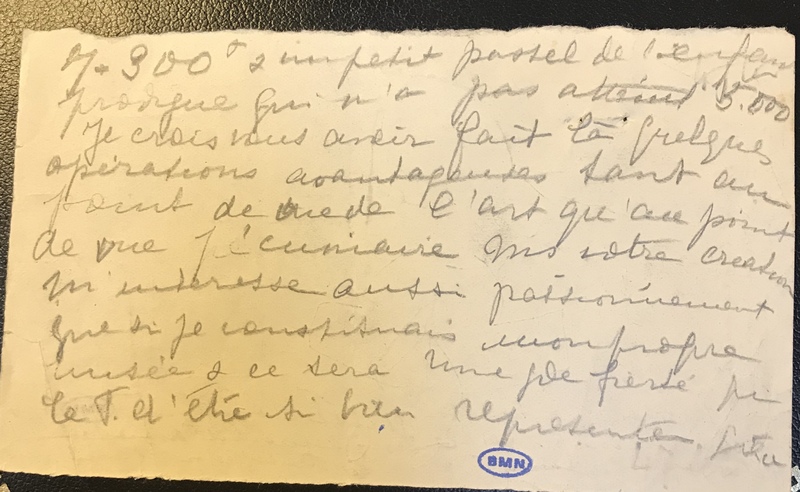 7.300 f & un petit pastel de l'enfant
prodigue qui n'a pas atteint 15.000
Je crois vous avoir fait là quelques
opérations avantageuses tant au
point de vue de l'art qu'au point
de vue pécuniaire ms votre création
m'intéresse aussi passionnément
que si je constituais mon propre
musée & ce sera une gde fierté
le P. d'été si bien représenté.
BMN